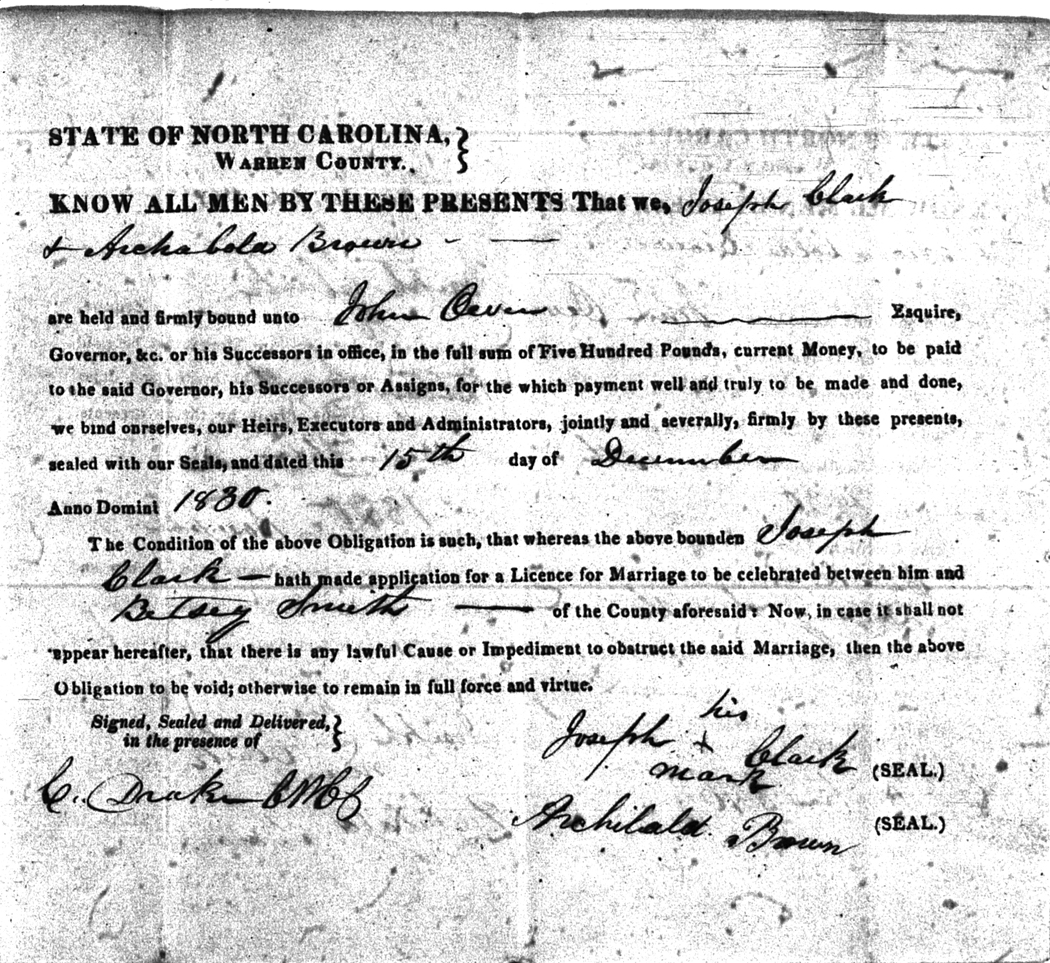 STATE OF NORTH CAROLINA,
WARREN COUNTY.
KNOW ALL MEN BY THESE PRESENTS That we, Joseph Clark
& Archabold Brown
are held and firmly bound unto John Owen Esquire,
Governor, &c. or his Successors in office, in the full sum of Five Hundred Pounds, current Money, to be paid
to the said Governor, his Successors or Assigns, for the which payment well and truly to be made and done,
we bind ourselves, our Heirs, Executors and Administrators, jointly and severally, firmly by these presents,
sealed with our Seals, and dated this 15th day of December
Anno Domini 1830.
The Condition of the above Obligation is such, that whereas the above bounden Joseph
Clark — hath made application for a Licence for Marriage to be celebrated between him and
Betsey Smith — of the County aforesaid: Now, in case it shall not
appear hereafter, that there is any lawful Cause or Impediment to obstruct the said Marriage, then the above
Obligation to be void; otherwise to remain in full force and virtue.
Signed, Sealed and Delivered,
in the presence of
his
Joseph + Clark (SEAL.)
mark
C. Drake CWCC
Archibald Brown (SEAL.)